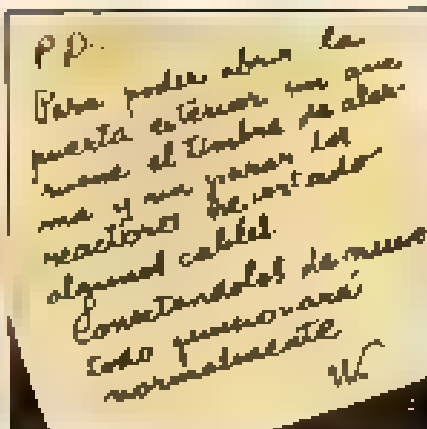 P.D..
Para poder abrir la
puerta exterior sin que
suene el timbre de alar-
ma y sin parar los
reactores he cortado
algunos cables.
Conectandolos de nuevo
todo funcionará
normalmente